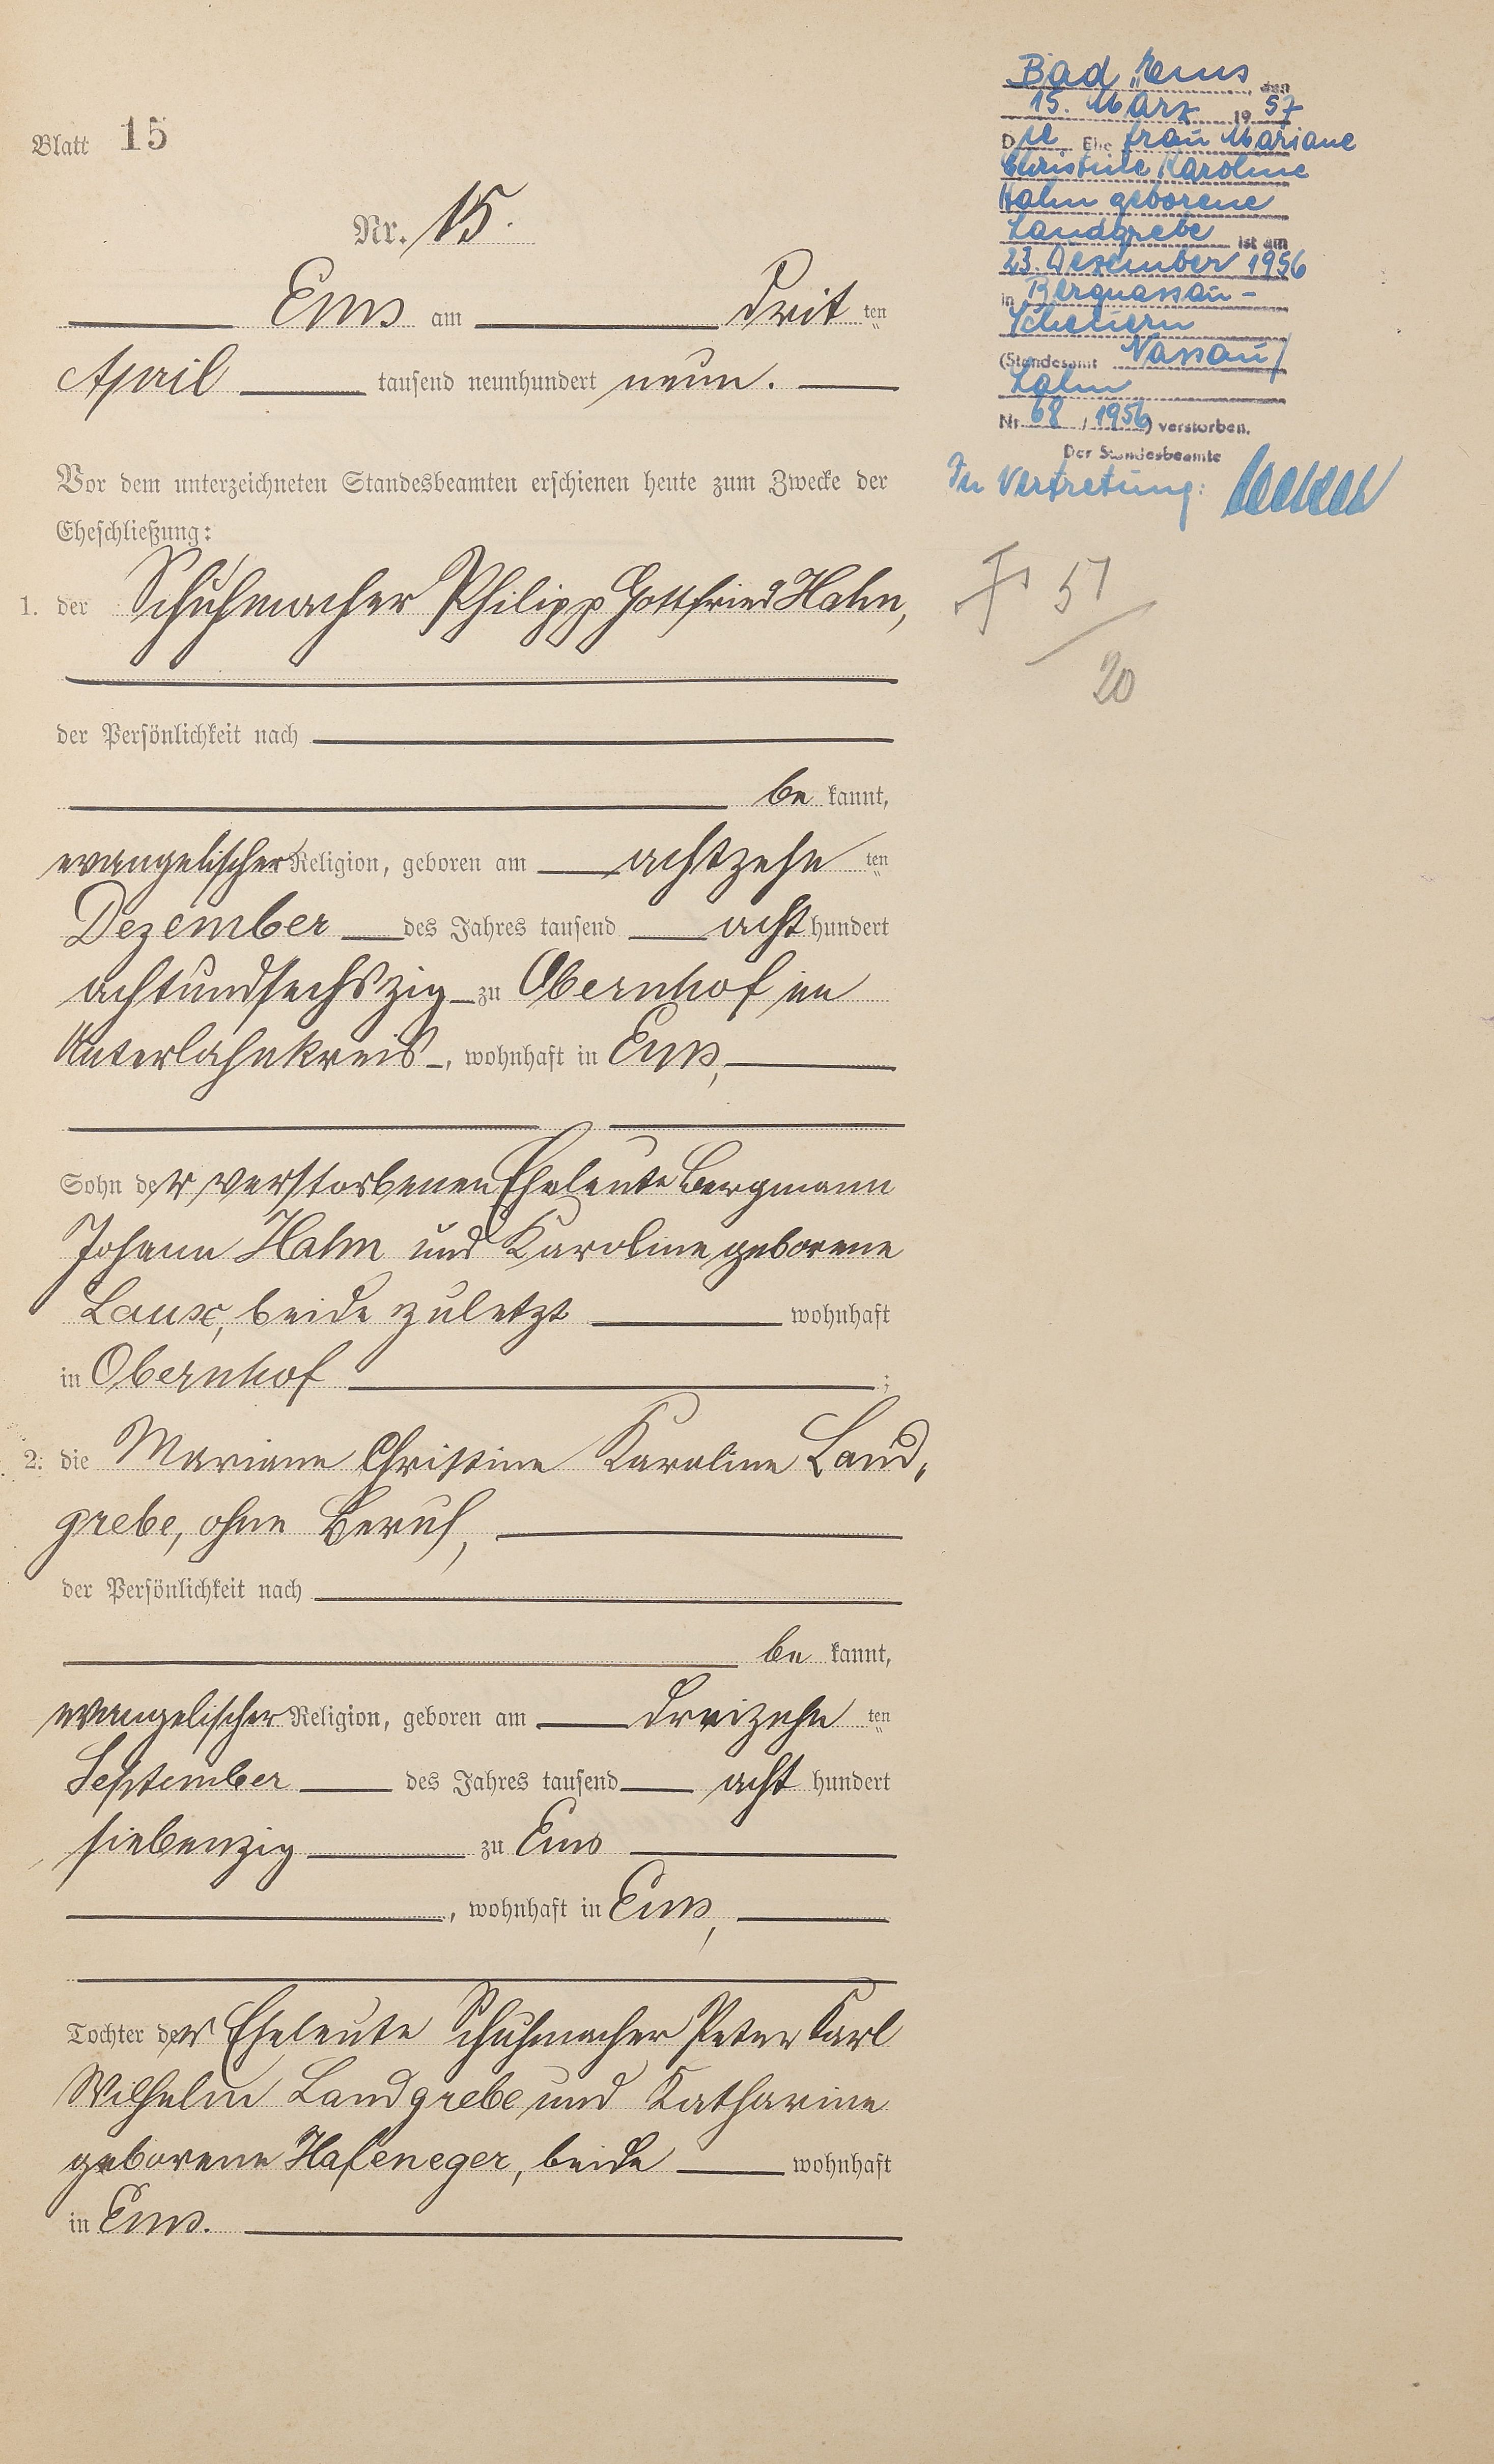 Blatt 15
Nr. 15.
Ems am dritten
April tausend neunhundert neun.
Vor dem unterzeichneten Standesbeamten erschienen heute zum Zwecke der
Eheschließung:
1. der Schuhmacher Philipp Gottfried Hahn,
der Persönlichkeit nach
bekannt,
evangelischer Religion, geboren am achtzehnten
Dezember des Jahres tausend achthundert
achtundsechszig zu Obernhof im
Unterlahnkreis, wohnhaft in Ems,
Sohn der verstorbenen Eheleute Bergmann
Johann Hahn und Karoline geborene
Laux, beide zuletzt wohnhaft
in Obernhof ;
2. die Mariane Christine Karoline Land,
grebe, ohne Beruf,
der Persönlichkeit nach
bekannt,
evangelischer Religion, geboren am dreizehnten
September des Jahres tausend achthundert
siebenzig zu Ems
, wohnhaft in Ems,
Tochter der Eheleute Schuhmacher Peter Karl
Wilhelm Landgrebe und Katharine
geborene Hafeneger, beide wohnhaft
in Ems.
Bad Ems, den
15. März 1957
Die Ehefrau Mariane
Christine Karoline
Hahn geborene
Landgrebe ist am
23. Dezember 1956
in Bergnassau-
Scheuern
(Standesamt Nassau/
Lahn
Nr. 68 / 1956) verstorben.
Der Standesbeamte
In Vertretung:
51
20